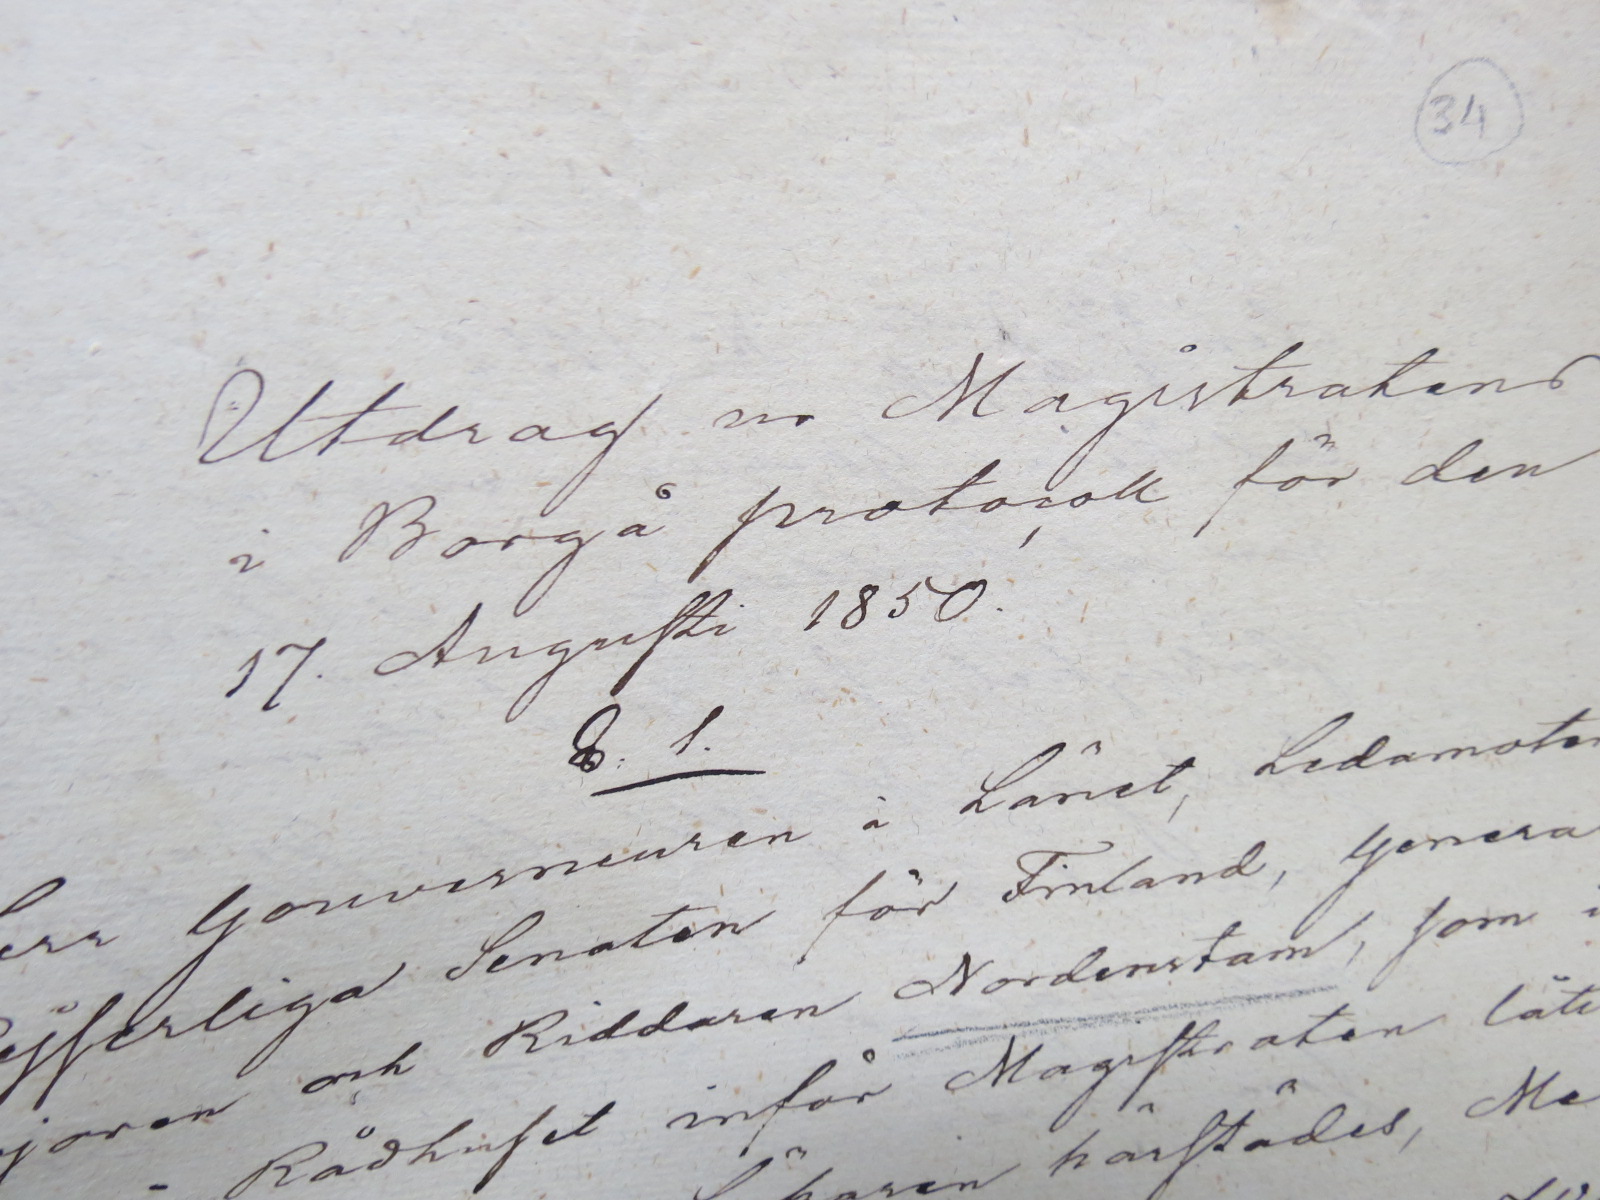 34
Utdrag ur Magistratens
i Borgå protocoll för den
17. Augusti 1850.
§. 1.
Herr Gouverneuren i Länet, Ledamoten
Kejserliga Senaten för Finland, General
majoren och Riddaren Nordenstam, som i
Rådhuset inför Magistraten låti
härstädes,